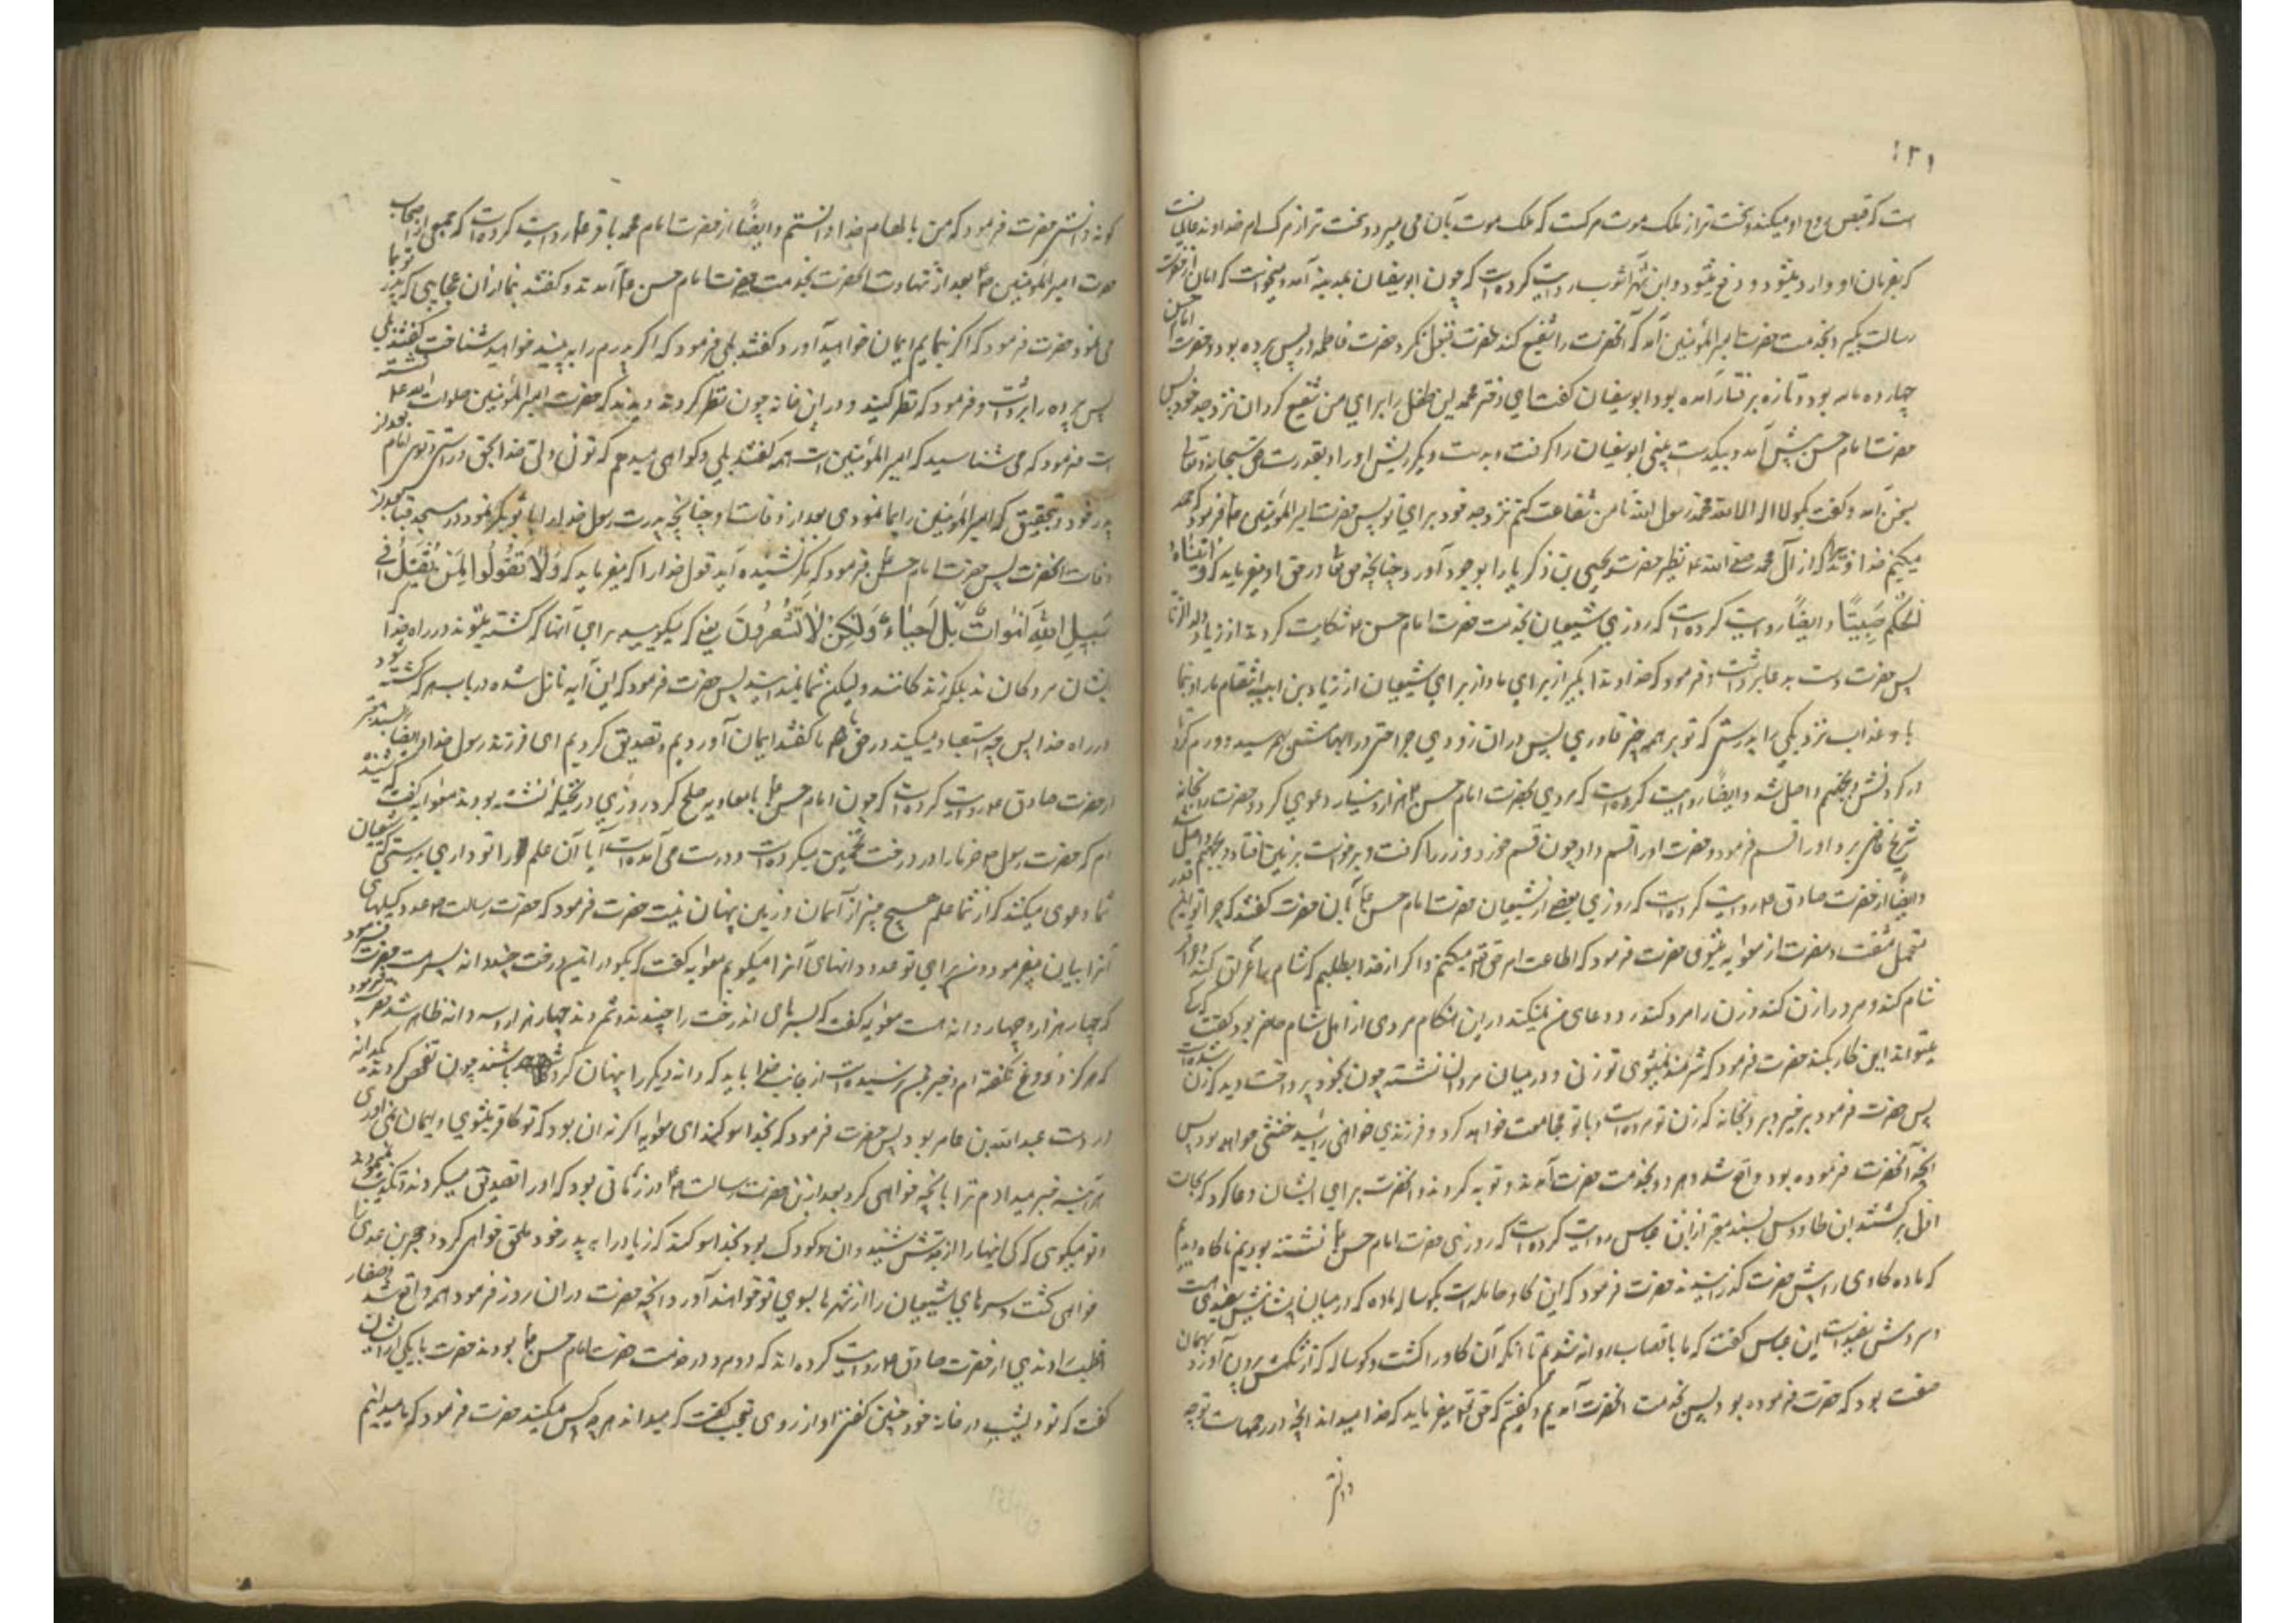 ۱۲۱
است که قبض روح او میکند و سخت تر از ملک موت مرکست که ملک موت بآن می میرد و سخت تر از مرک امر خداوند عالمیانست
که بفرمان او وارد میشود و دفع میشود و ابن شهرآشوب روایت کرده است که چون ابوسفیان بمدینه آمد و میخواست که امان از حضرت
رسالت بگیرد بخدمت حضرت امیرالمؤمنین آمد که آنحضرت را شفیع کند حضرت قبول نکرد و حضرت فاطمه در پس پرده بود و حضرت امام حسن
چهارده ماهه بود و تازه برفتار آمده بود ابوسفیان گفت ای دختر محمد این طفل را برای من شفیع کردان نزد جد خود پس
حضرت امام حسن پیش آمد و بیکدست بینی ابوسفیان را کرفت و بدست دیگر ریش او را و بقدرت حق سبحانه و تعالی
بسخن آمد و گفت بگو لا اله الا الله محمد رسول الله تا من شفاعت کنم نزد جد خود برای تو پس حضرت امیرالمؤمنین ع فرمود که حمد
میکنم خداوندی را که از آل محمد صلی الله نظیر حضرت یحیی بن ذکریا را بوجود آورد چنانچه حق تعالی در حق او میفرماید که و اتیناه
الحکم صبیّا و ایضاً روایت کرده است که روزی شیعیان بخدمت حضرت امام حسن ع شکایت کردند از زیاد ولدالزنا
پس حضرت دست بدعا برداشت و فرمود که خداوندا بگیر از برای ما و از برای شیعیان از زیاد بن ابیه انتقام ما را و بنما
بما عذاب نزدیکی را بدرستی که تو بر همه چیز قادری پس در آن زودی جراحتی در ابهامش بهم رسید و ورم کرد
در کردنش و بجهنم واصل شد و ایضاً روایت کرده است که مردی بحضرت امام حسن ع هزار دینار دعوی کرد و حضرت را بخانه
شریح قاضی برد و او را قسم فرمود و حضرت او را قسم داد چون قسم خورد و زر را کرفت و برخواست بر زمین افتاد و بجهنم واصل شد
و ایضاً از حضرت صادق ع روایت کرده است که روزی بعضی از شیعیان حضرت امام حسن ع بآن حضرت گفتند که چرا تو اینقدر
متحمل مشقت و مضرت از معویه میشوی حضرت فرمود که اطاعت امر حق تعالی میکنم و اکر از خدا بطلبم که شام را عراق کند و عراق را
شام کند و مرد را زن کند و زن را مرد کند رد دعای من نمیکند در این هنگام مردی از اهل شام حاضر بود گفت که کی
میتواند این کار بکند حضرت فرمود که شرمنده نمیشوی تو زنی و در میان مردان نشسته چون بخود پرداخت دید که زن شده است
پس حضرت فرمود برخیز و برو بخانه که زن تو مرد شده است و با تو مجامعت خواهد کرد و فرزندی خواهی زائید خنثی خواهد بود پس
آنچه آنحضرت فرموده بود واقع شد و هر دو بخدمت حضرت آمدند و توبه کردند و آنحضرت برای ایشان دعا کرد که بحالت
اول برگشتند ابن طاووس بسند معتبر از ابن عباس روایت کرده است که روزی حضرت امام حسن ع نشسته بودیم ناگاه دیدیم
که ماده کاوی را پیش حضرت گذرانیدند حضرت فرمود که این کاو حامله است بگوساله ماده که در میان پیشانیش سفیدی هست
و سر دمش سفید است ابن عباس گفت که ما با قصاب روانه شدیم تا آنکه آن کاو را کشت و گوساله که از شکمش بیرون آورد بهمان
صفت بود که حضرت فرموده بود پس بخدمت آنحضرت آمدیم و گفتیم که حق تعالی میفرماید که خدا میداند آنچه در رحمهاست تو چه
دانستی
گونه دانستی حضرت فرمود که من بالهام خدا دانستم و ایضاً از حضرت امام محمد باقر ع روایت کرده است که جمعی از اصحاب
حضرت امیرالمؤمنین ع بعد از شهادت آنحضرت بخدمت حضرت امام حسن ع آمدند و گفتند بنما از آن عجایبی که پدر تو بما
می نمود حضرت فرمود که اکر بنمایم ایمان خواهید آورد گفتند بلی فرمود که اکر پدرم را به بینید خواهید شناخت گفتند بلی
پس پرده را برداشت و فرمود که نظر کنید در این خانه چون نظر کردند دیدند که حضرت امیرالمؤمنین صلوات الله علیه نشسته
است فرمود که می شناسید که امیرالمؤمنین است همه گفتند بلی و گواهی میدهیم که توئی ولی خدا بحق و راستی و توئی امام بعد از
پدر خود و بتحقیق که امیرالمؤمنین را بما نمودی بعد از وفات او چنانچه پدرت رسول خدا را بابوبکر نمود در مسجد قبا بعد از
وفات آنحضرت پس حضرت امام حسن ع فرمود که مگر نشنیده اید قول خدا را که میفرماید که وَلَا تَقُولُوا لِمَنْ یُقْتَلُ فی
سَبِیلِ اللهِ اَمْوَاتٌ بَلْ اَحْیَاءٌ وَلَکِنْ لَا تَشْعُرُونَ یعنی که نگویید برای آنها که کشته میشوند در راه خدا
ایشان مردکانند بلکه زندکانند ولیکن شما نمیدانید پس حضرت فرمود که این آیه نازل شده در باب هر که کشته شود
در راه خدا پس چه استبعاد میکنید در حق ما همه گفتند ایمان آوردیم و تصدیق کردیم ای فرزند رسول خدا و ایضا بسند معتبر
از حضرت صادق ع روایت کرده است که چون امام حسن ع با معاویه صلح کرد روزی در نخیله نشسته بودند معویه گفت که شنیده
ام که حضرت رسول ع خرما را در درخت تخمین میکرده است و درست می آمده است آیا آن علم را تو داری بدرستی که شیعیان
شما دعوی میکنند که از شما علم هیچ چیز از آسمان و زمین پنهان نیست حضرت فرمود که حضرت رسالت ع عدد کیلهای
آنرا بیان میفرمود و من برای تو عدد دانهای آنرا میگویم معویه گفت که بگو در این درخت چند دانه بسر هست حضرت فرمود
که چهار هزار و چهار دانه است معویه گفت که بسرهای آن درخت را چیدند و شمردند چهار هزار و سه دانه ظاهر شد حضرت فرمود
که هرگز دروغ نگفته ام و خبر دروغ بمن نرسیده است از جانب خدا باید که دانه دیگر را پنهان کرده باشند چون تفحص کردند یکدانه
در دست عبدالله بن عامر بود پس حضرت فرمود که بخدا سوگند ای معویه اکر نه آن بود که تو کافر میشوی و ایمان نمی آوری
هر آینه خبر میدادم ترا بآنچه خواهی کرد بعد از این حضرت رسالت ع در زمانی بود که او را تصدیق میکردند و تکذیب نمینمودند
و تو میگوئی که کی اینها را از جدش شنید و آن کودک بود بخدا سوگند که زیاد را به پدر خود ملحق خواهی کرد و حجر بن عدی را
خواهی کشت و سرهای شیعیان را از شهرها بسوی تو خواهند آورد و آنچه حضرت در آن روز فرمود همه واقع شد و صفار
و قطب راوندی از حضرت صادق ع روایت کرده اند که دو مرد در خدمت حضرت امام حسن ع بودند حضرت بایکی از ایشان
گفت که تو دیشب در خانه خود چنین گفتی او از روی تعجب گفت که میداند هر چه کس میکند حضرت فرمود که ما میدانیم